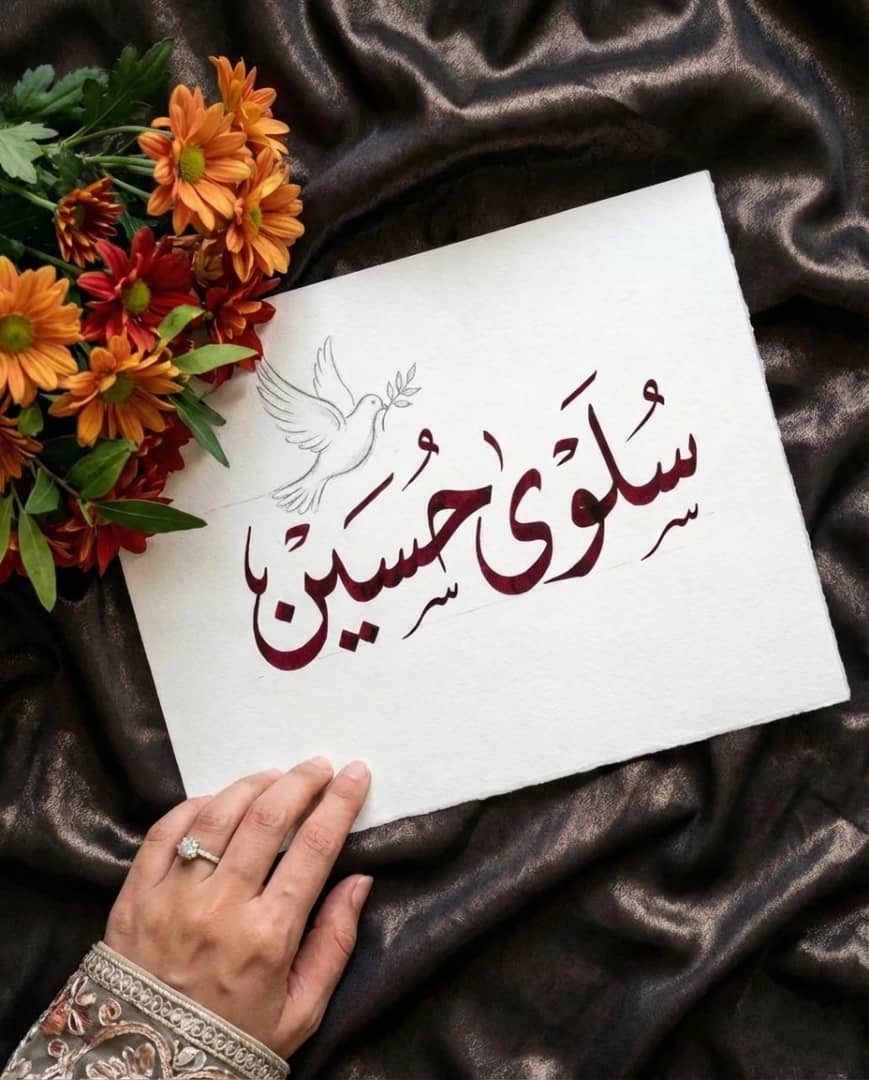 سُلْوَىٰ حُسَيْن